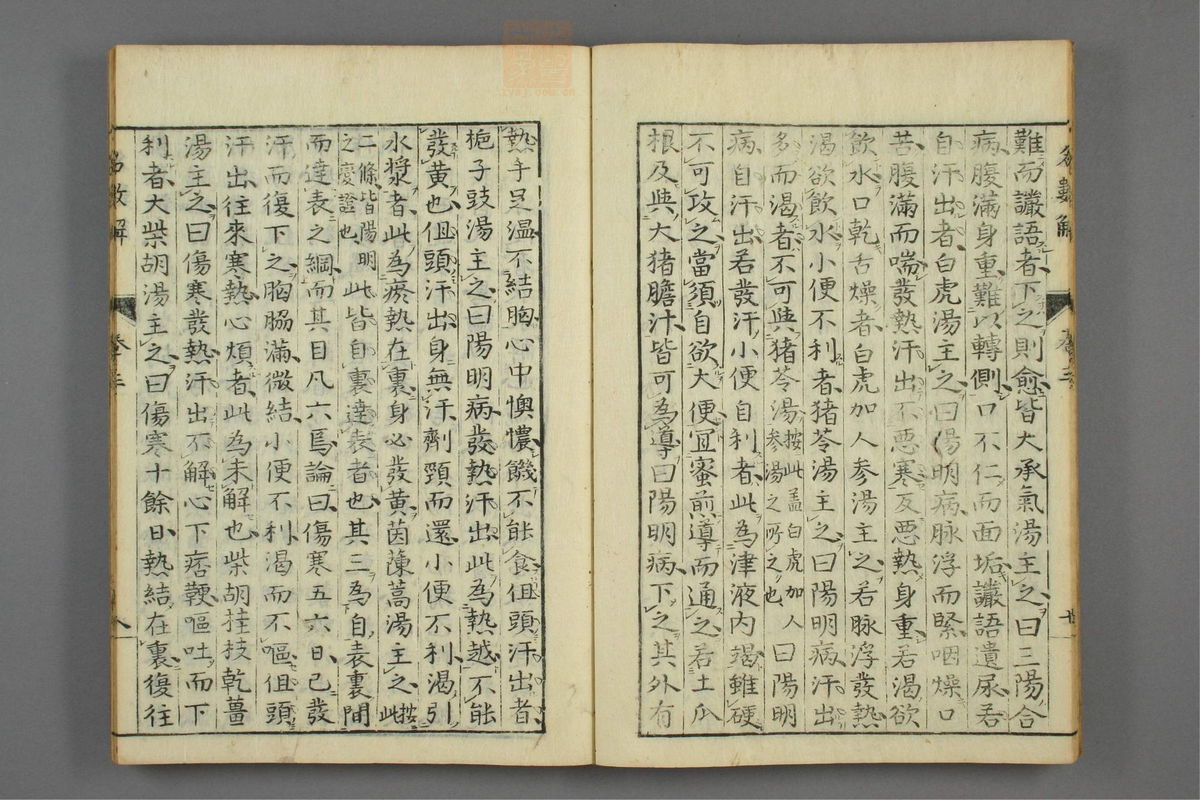 難而讝語者下之則愈皆大承氣湯主之曰三陽合
病腹滿身重難以轉側口不仁而面垢讝語遺尿若
自汗出者白虎湯主之曰陽明病脉浮而緊咽燥口
苦腹滿而喘發熱汗出不惡寒反惡熱身重若渴欲
飲水口乾舌燥者白虎加人参湯主之若脉浮發熱
渴欲飲水小便不利者猪苓湯主之曰陽明病汗出
多而渴者不可與猪苓湯按此盖白虎加人参湯之所之也曰陽明
病自汗出若發汗小便自利者此為津液内竭雖硬
不可攻之當須自欲大便宜蜜煎導而通之若土瓜
根及與大猪膽汁皆可為導曰陽明病下之其外有
熱手足温不結胸心中懊憹饑不能食但頭汗出者
梔子豉湯主之曰陽明病發熱汗出此為熱越不能
發黄也但頭汗出身無汗劑頸而還小便不利渴引
水漿者此為瘀熱在裏身必發黄茵蔯蒿湯主之按此
二條皆陽明之變證也此皆自裏達表者也其三為自表裏間
而達表之綱而其目凡六焉論曰傷寒五六日已發
汗而復下之胸脇滿微結小便不利渴而不嘔但頭
汗出往來寒熱心煩者此為未解也柴胡桂枝乾薑
湯主之曰傷寒發熱汗出不解心下痞鞕嘔吐而下
利者大柴胡湯主之曰傷寒十餘日熱結在裏復往